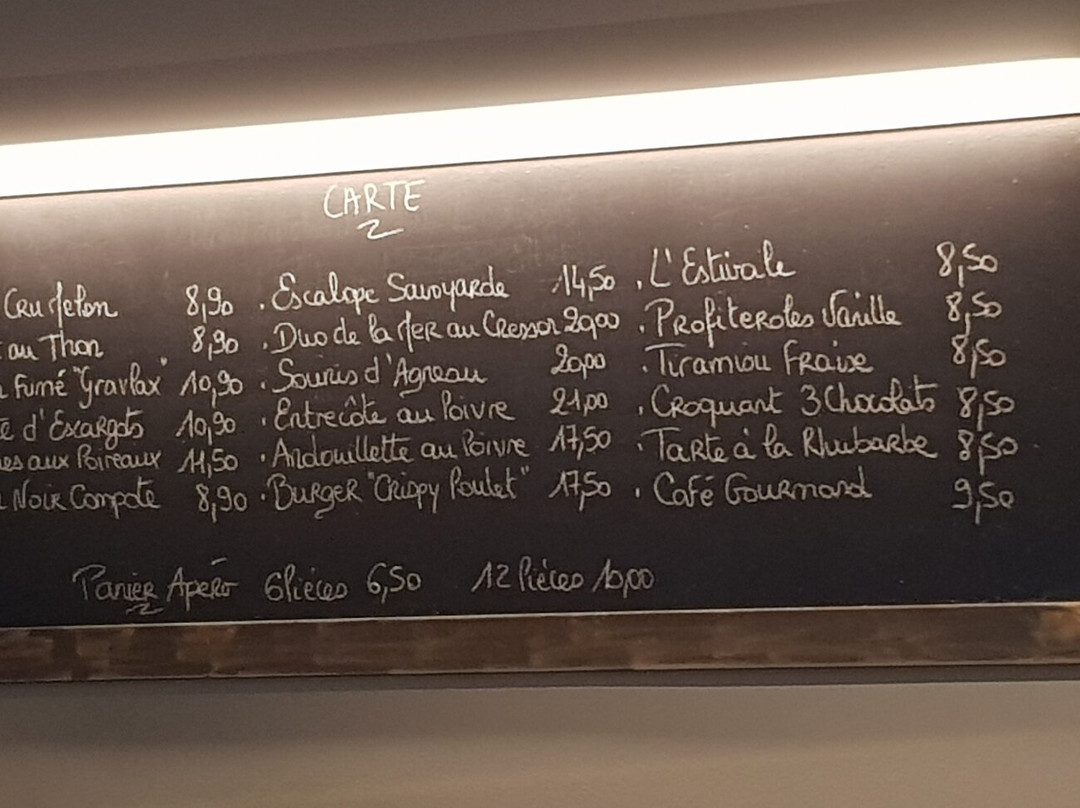 CARTE
Cru Melon 8,90 . Escalope Savoyarde 14,50 . L'Estivale 8,50
au Thon 8,90 . Duo de la Mer au Cresson 20,00 . Profiteroles Vanille 8,50
Fumé "Gravlax" 10,90 . Souris d'Agneau 20,00 . Tiramisu Fraise 8,50
d'Escargots 10,90 . Entrecôte au Poivre 21,00 . Croquant 3 Chocolats 8,50
aux Poireaux 11,50 . Andouillette au Poivre 17,50 . Tarte à la Rhubarbe 8,50
Noir Compote 8,90 . Burger "Crispy Poulet" 17,50 . Café Gourmand 9,50
Panier Apéro 6 Pièces 6,50 12 Pièces 10,00